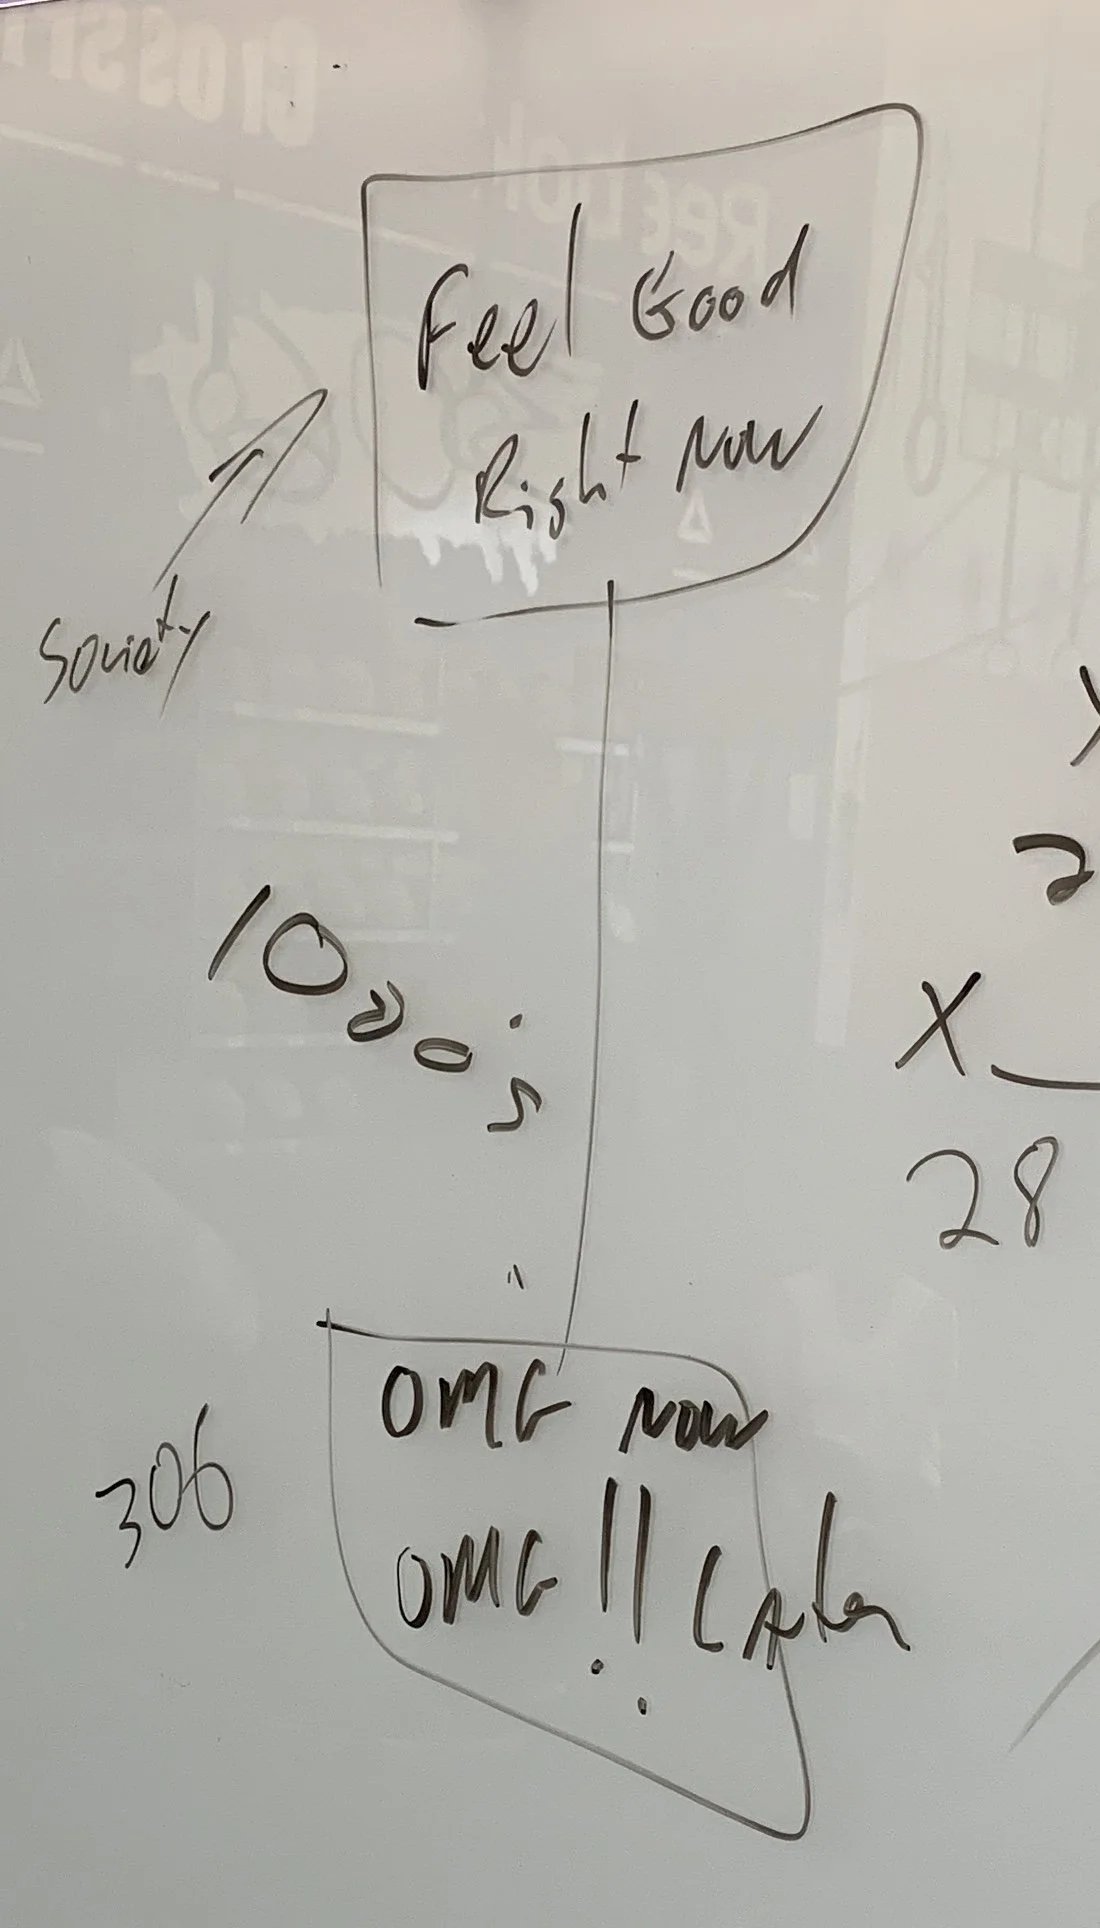 Feel Good
Right Now
Society
10
2
X
28
OMG Now
306
OMG !! Later